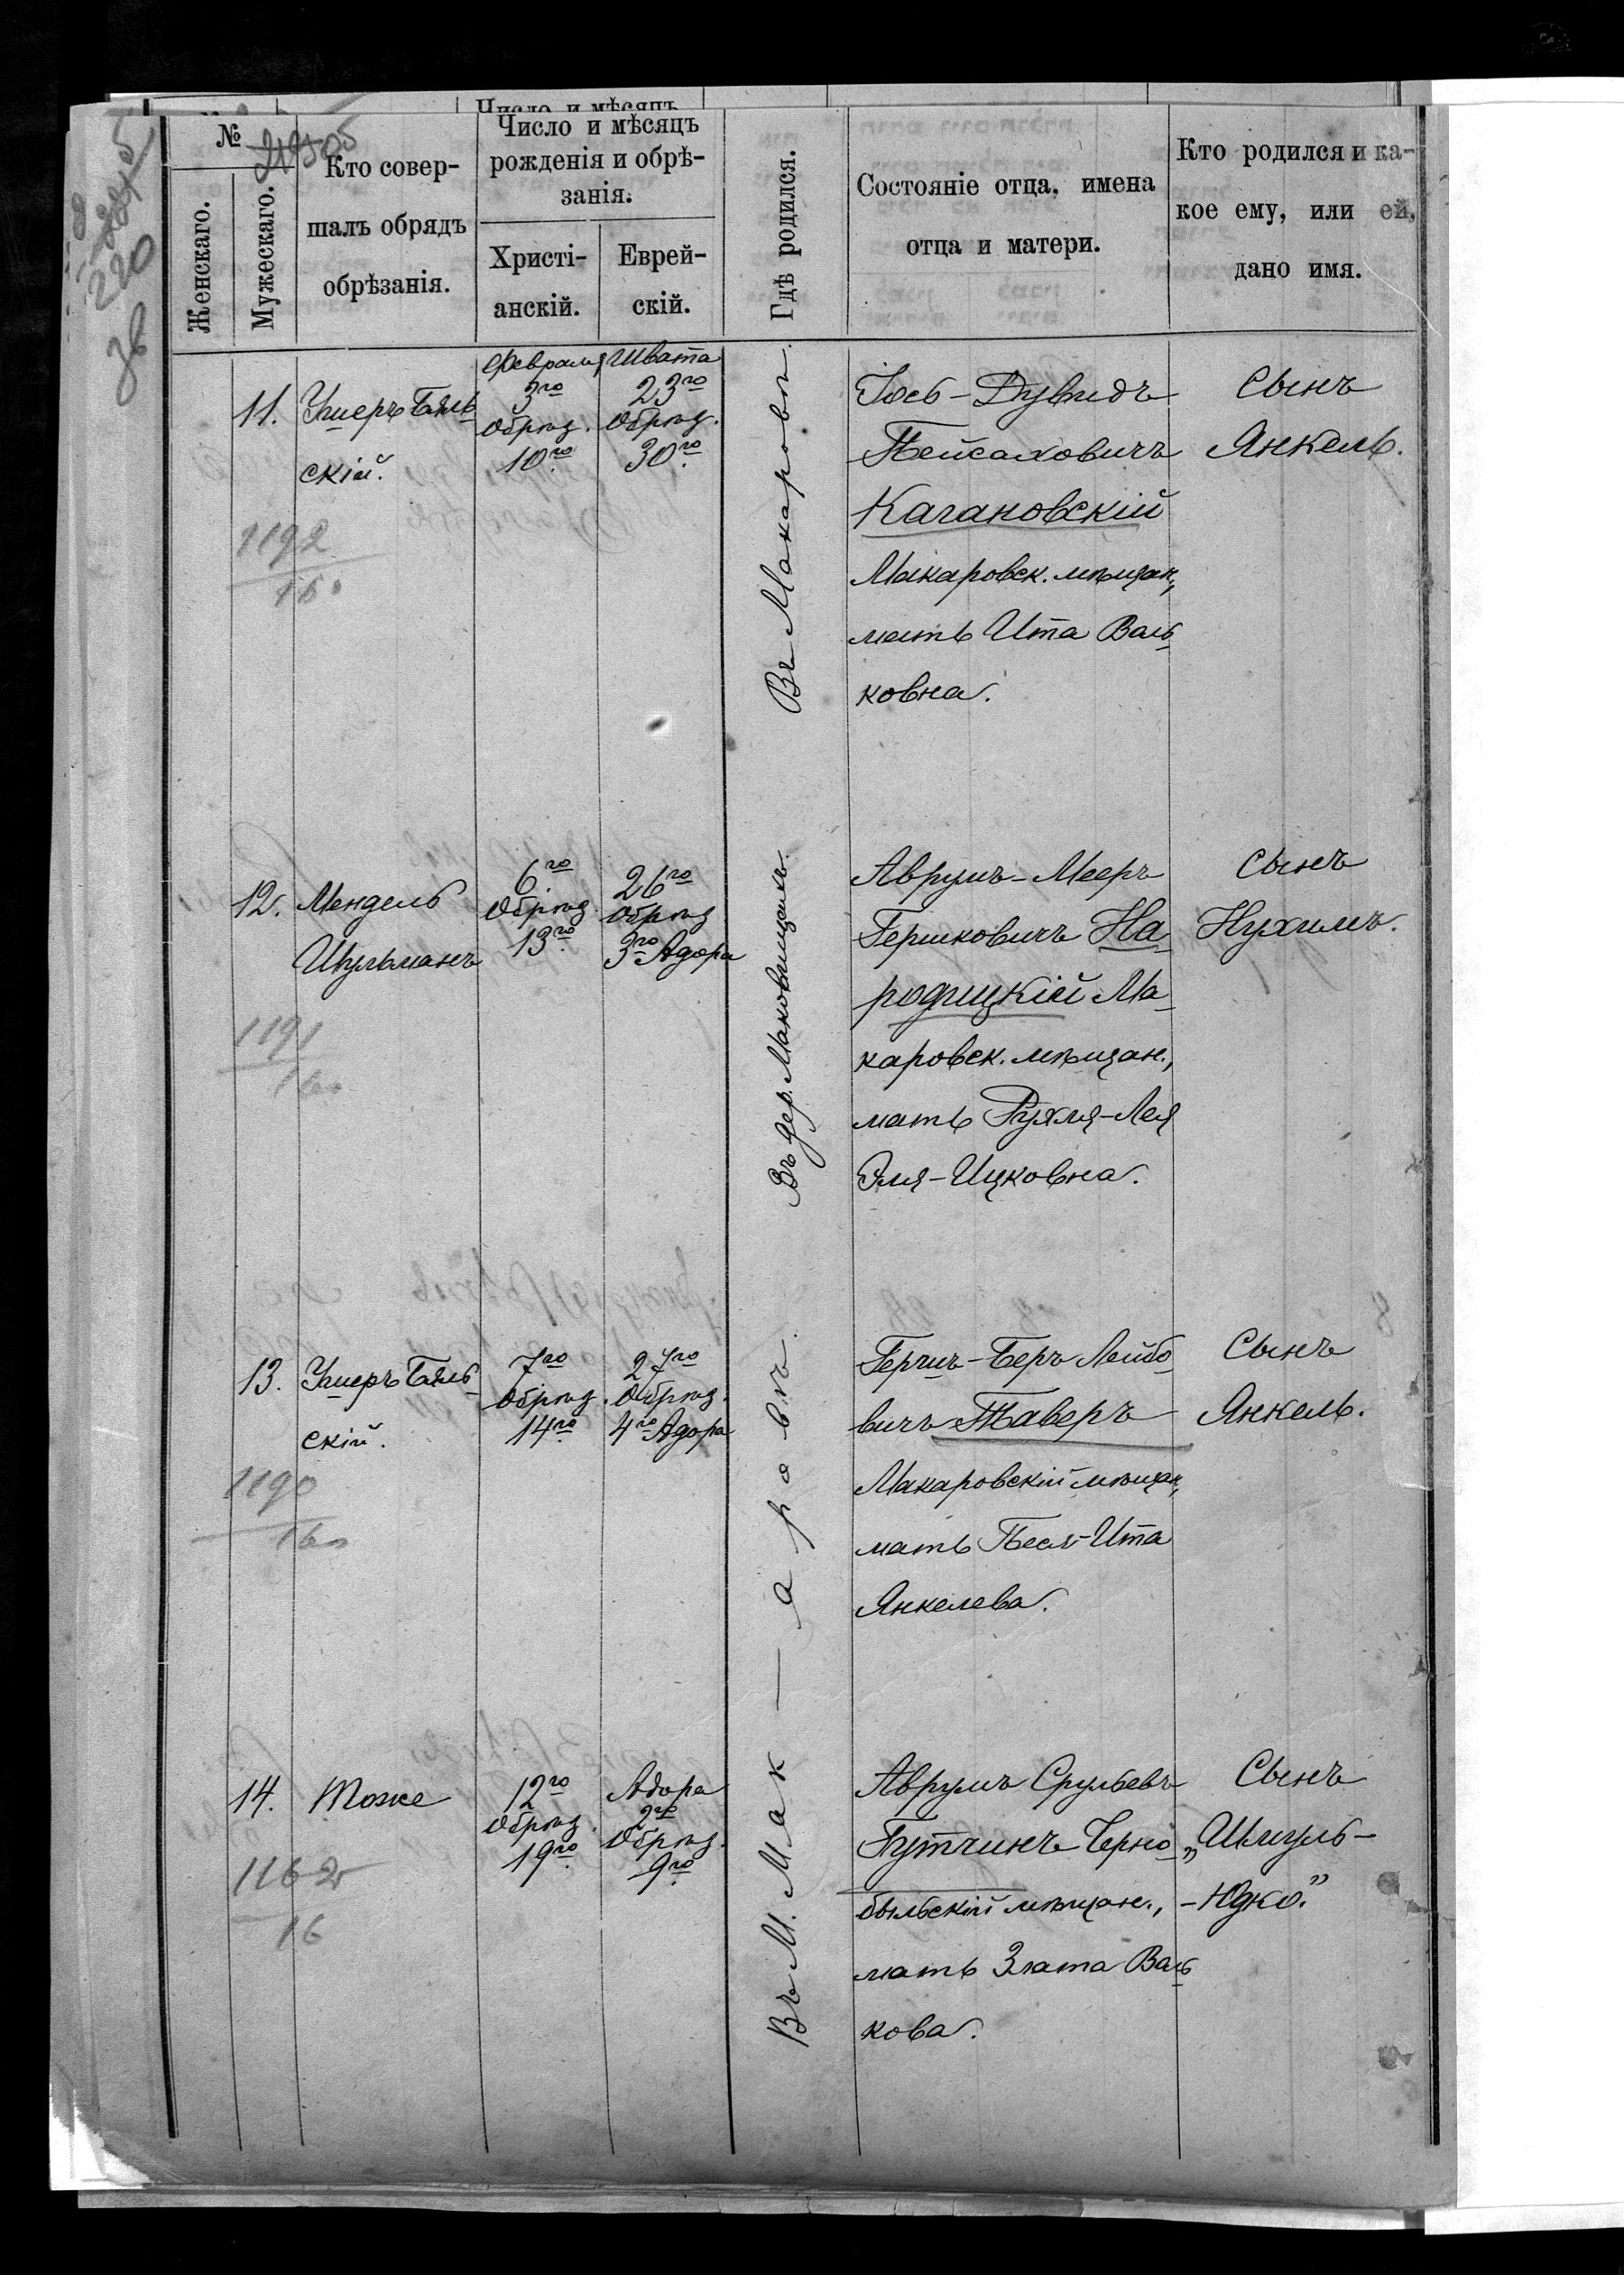 Число и мѣсяцъ
№
Женскаго.
Мужескаго.
Кто совер-
шалъ обрядъ
обрѣзанія.
Число и мѣсяцъ
рожденія и обрѣ-
занія.
Христі-
анскій.
Еврей-
скій.
Гдѣ родился.
Состояніе отца, имена
отца и матери.
Кто родился и ка-
кое ему, или ей,
дано имя.
220
36
11.
Ушеръ Бяль
скій.
1192
160
Февраля
3го
Обрѣз.
10го
Швата
23го
Обрѣз.
30го
Въ Макаровѣ.
Іось-Дувидъ
Пейсаховичъ
Кагановскій
Макаровск. мѣщан.,
мать Ита Вль
ковна.
Сынъ
Янкель.
12.
Мендель
Шульманъ
1191
160
6го
Обрѣз.
13го
26го
Обрѣз
3го Адора
Въ дер. Маковищахъ.
Аврумъ-Мееръ
Гершковичъ На
родицкій Ма
каровск. мѣщан.,
мать Рухля-Лея
Эля-Ицковна.
Сынъ
Нухимъ.
13.
Ушеръ Бяль
скій.
1190
160
7го
Обрѣз.
14го
27го
Обрѣз.
4го Адора
Гершъ-Беръ Лейбо
вичъ Таверъ
Макаровскій мѣщан.,
мать Песя-Ита
Янкелева.
Сынъ
Янкель.
14.
Тоже
1162
16
12го
Обрѣз.
19го
Адора
2го
Обрѣз.
9го
Въ М. Мак — аровѣ.
Аврумъ Срульевъ
Гутчинъ Черно
быльскій мѣщан.,
мать Злата Вль
кова.
Сынъ
„Шмуль-
-Юдко."